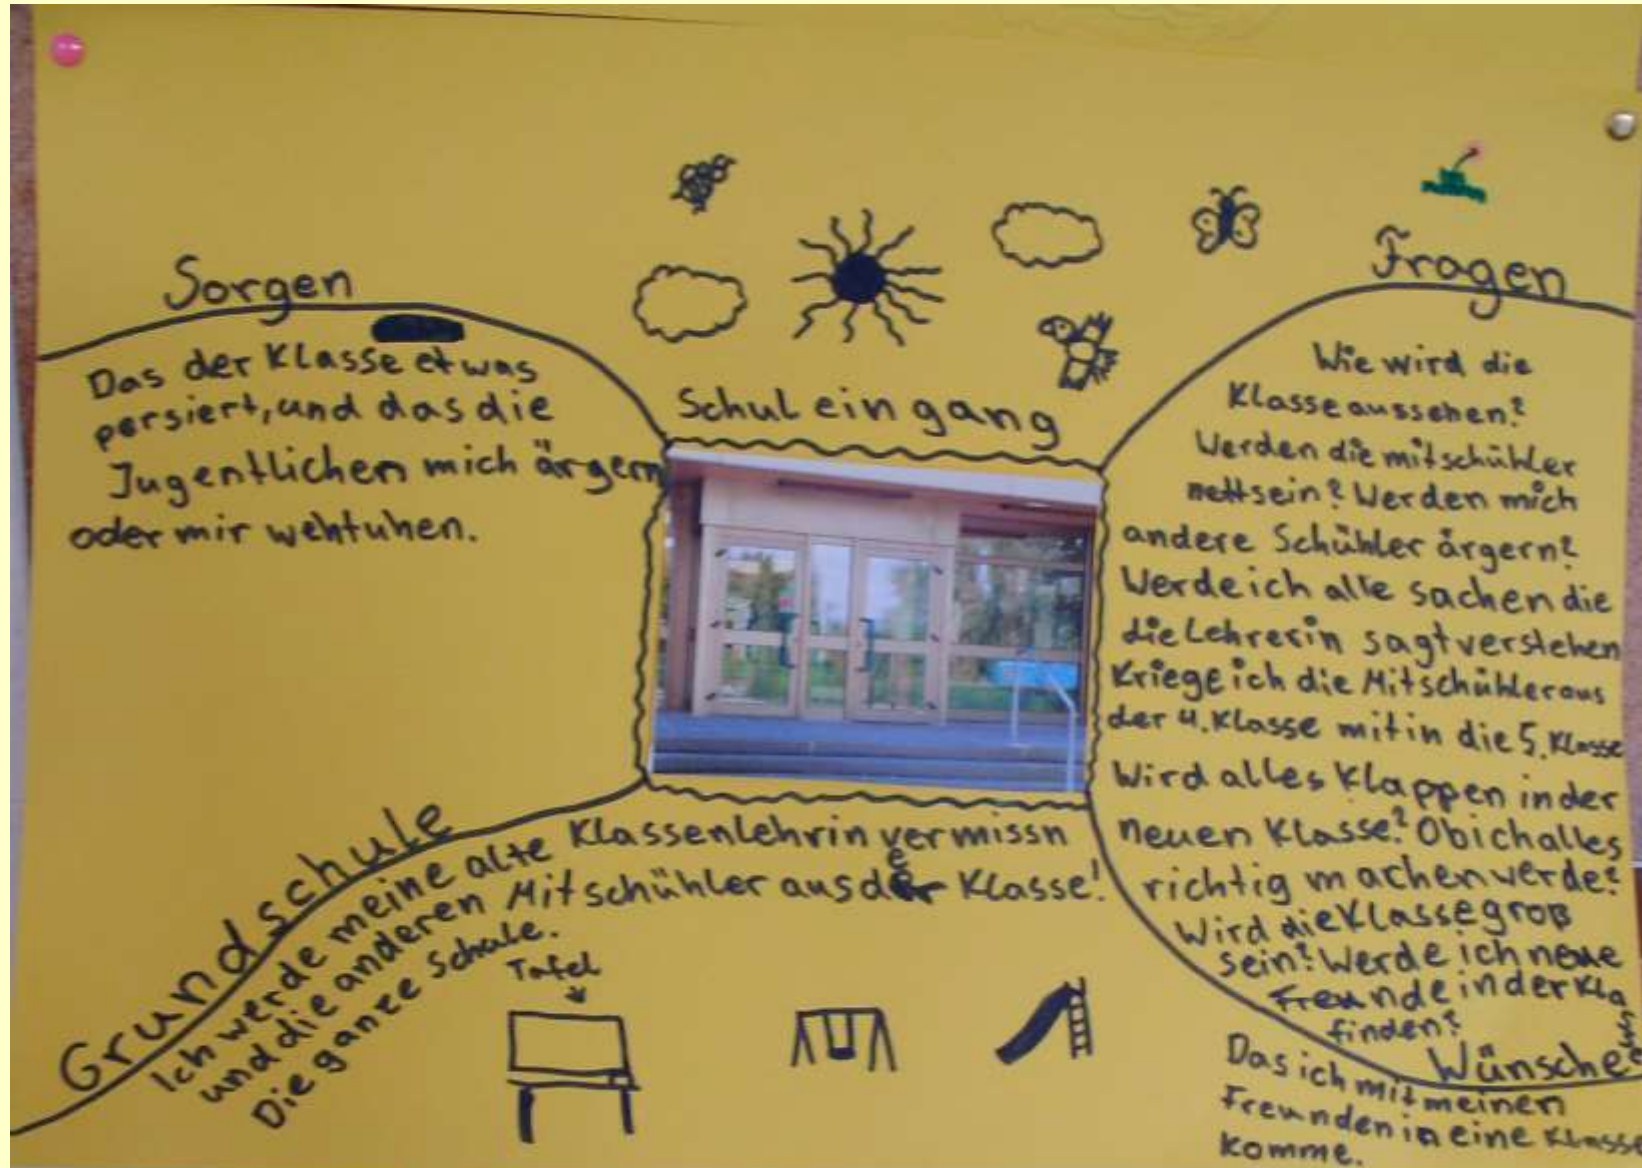 Sorgen
Das der Klasse etwas
persiert, und das die
Jugentlichen mich ärgern
oder mir wehtuhen.
Schuleingang
Fragen
Wie wird die
Klasse aussehen?
Werden die mitschühler
nett sein? Werden mich
andere Schühler ärgern?
Werde ich alle sachen die
die Lehrerin sagt verstehen
Kriege ich die Mitschühler aus
der 4. Klasse mit in die 5. Klasse
Wird alles Klappen in der
neuen Klasse? Ob ich alles
richtig machen werde?
Wird die Klasse groß
sein? Werde ich neue
freunde in der Klasse
finden?
Grundschule
Ich werde meine alte Klassenlehrin vermissn
und die anderen Mitschühler aus der Klasse!
Die ganze Schule.
Tafel
Wünsche
Das ich mit meinen
Freunden in eine Klasse
komme.